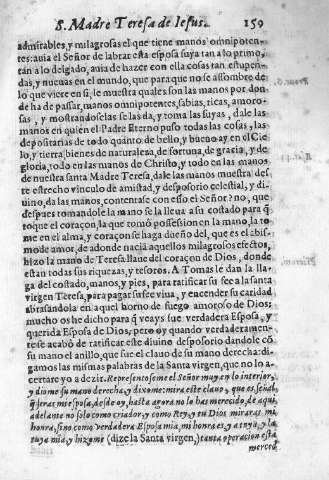 S. Madre Teresa de Iesus. 159
admirables, y milagrosas el que tiene manos omnipoten-
tes: auia el Señor de labrar esta esposa suya tan a lo primo,
tan a lo delgado, auia de hazer con ella cosas tan estupen-
das, y nueuas en el mundo, que para que no se assombre de
lo que viere en si, le muestra quales son las manos por don-
de ha de passar, manos omnipotentes, sabias, ricas, amoro-
sas, y mostrandoselas se las da, y toma las suyas, dale las
manos en quien el Padre Eterno puso todas las cosas, las
depositarias de todo quanto de bello, y bueno ay en el Cie-
lo, y tierra, bienes de naturaleza, de fortuna, de gracia, y de
gloria, todo en las manos de Christo, y todo en las manos
de nuestra santa Madre Teresa, dale las manos muestra des
te estrecho vinculo de amistad, y desposorio celestial, y di-
uino, da las manos, contentase con esso el Señor? no, que
despues tomandole la mano se la lleua a su costado para q̃
toque el coraçon, la que tomò possession en la mano, la to-
me en el alma, y coraçon se haga dueño del, que es el abis-
mo de amor, de adonde nacia aquellos milagrosos efectos,
hizo la mano de Teresa llaue del coraçon de Dios, donde
estan todas sus riquezas, y tesoros. A Tomas le dan la lla-
ga del costado, manos, y pies, para ratificar su fee a la santa
virgen Teresa, para pagar su fee viua, y encender su caridad
abrasandola en aquel horno de fuego amoroso de Dios:
mucho os he dicho para q̃ veays fue verdadera Esposa, y
querida Esposa de Dios, pero oy quando verdaderamen-
te se acabò de ratificar este diuino desposorio dandole cõ
su mano el anillo, que fue el clauo de su mano derecha: di-
gamos las mismas palabras de la Santa virgen, que no lo a-
certare yo a dezir. Representoseme el Señor muy en lo interior,
y diome su mano derecha, y dixome: mira este clauo, que es señal
q̃ seras mi esposa, desde oy, hasta agora no lo has merecido, de aqui
adelante no solo como criador, y como Rey, y tu Dios miraras mi
honra, sino como verdadera Esposa mia, mi honra es ya tuya, y la
tuya mia, y hizome (dize la Santa virgen,) tanta operacion esta
merced